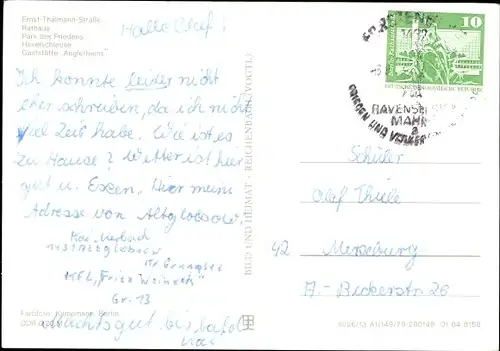 Ernst-Thälmann-Straße
Rathaus
Park des Friedens
Havelschleuse
Gaststätte „Anglerheim"
Hallo Olaf!
Ich konnte leider nicht
eher schreiben, da ich nicht
viel Zeit habe. Wie ist es
zu Hause? Wetter ist hier
gut u. Essen. Hier meine
Adresse von Altglobsow.
Kai
1431 Altglobsow
Kr. Gransee
KFL „Fritz Weineck"
Gr. 13
Machts gut bis bald
Kai
Farbfoto: Kühmann, Berlin
DDR
BILD UND HEIMAT · REICHENBACH (VOGTL)
10
RAVENSBRÜCK
MAHN
Schüler
Olaf Thiele
42 Merseburg
A.-Beckerstr 26
A1/149/79 280149 01 04 0158